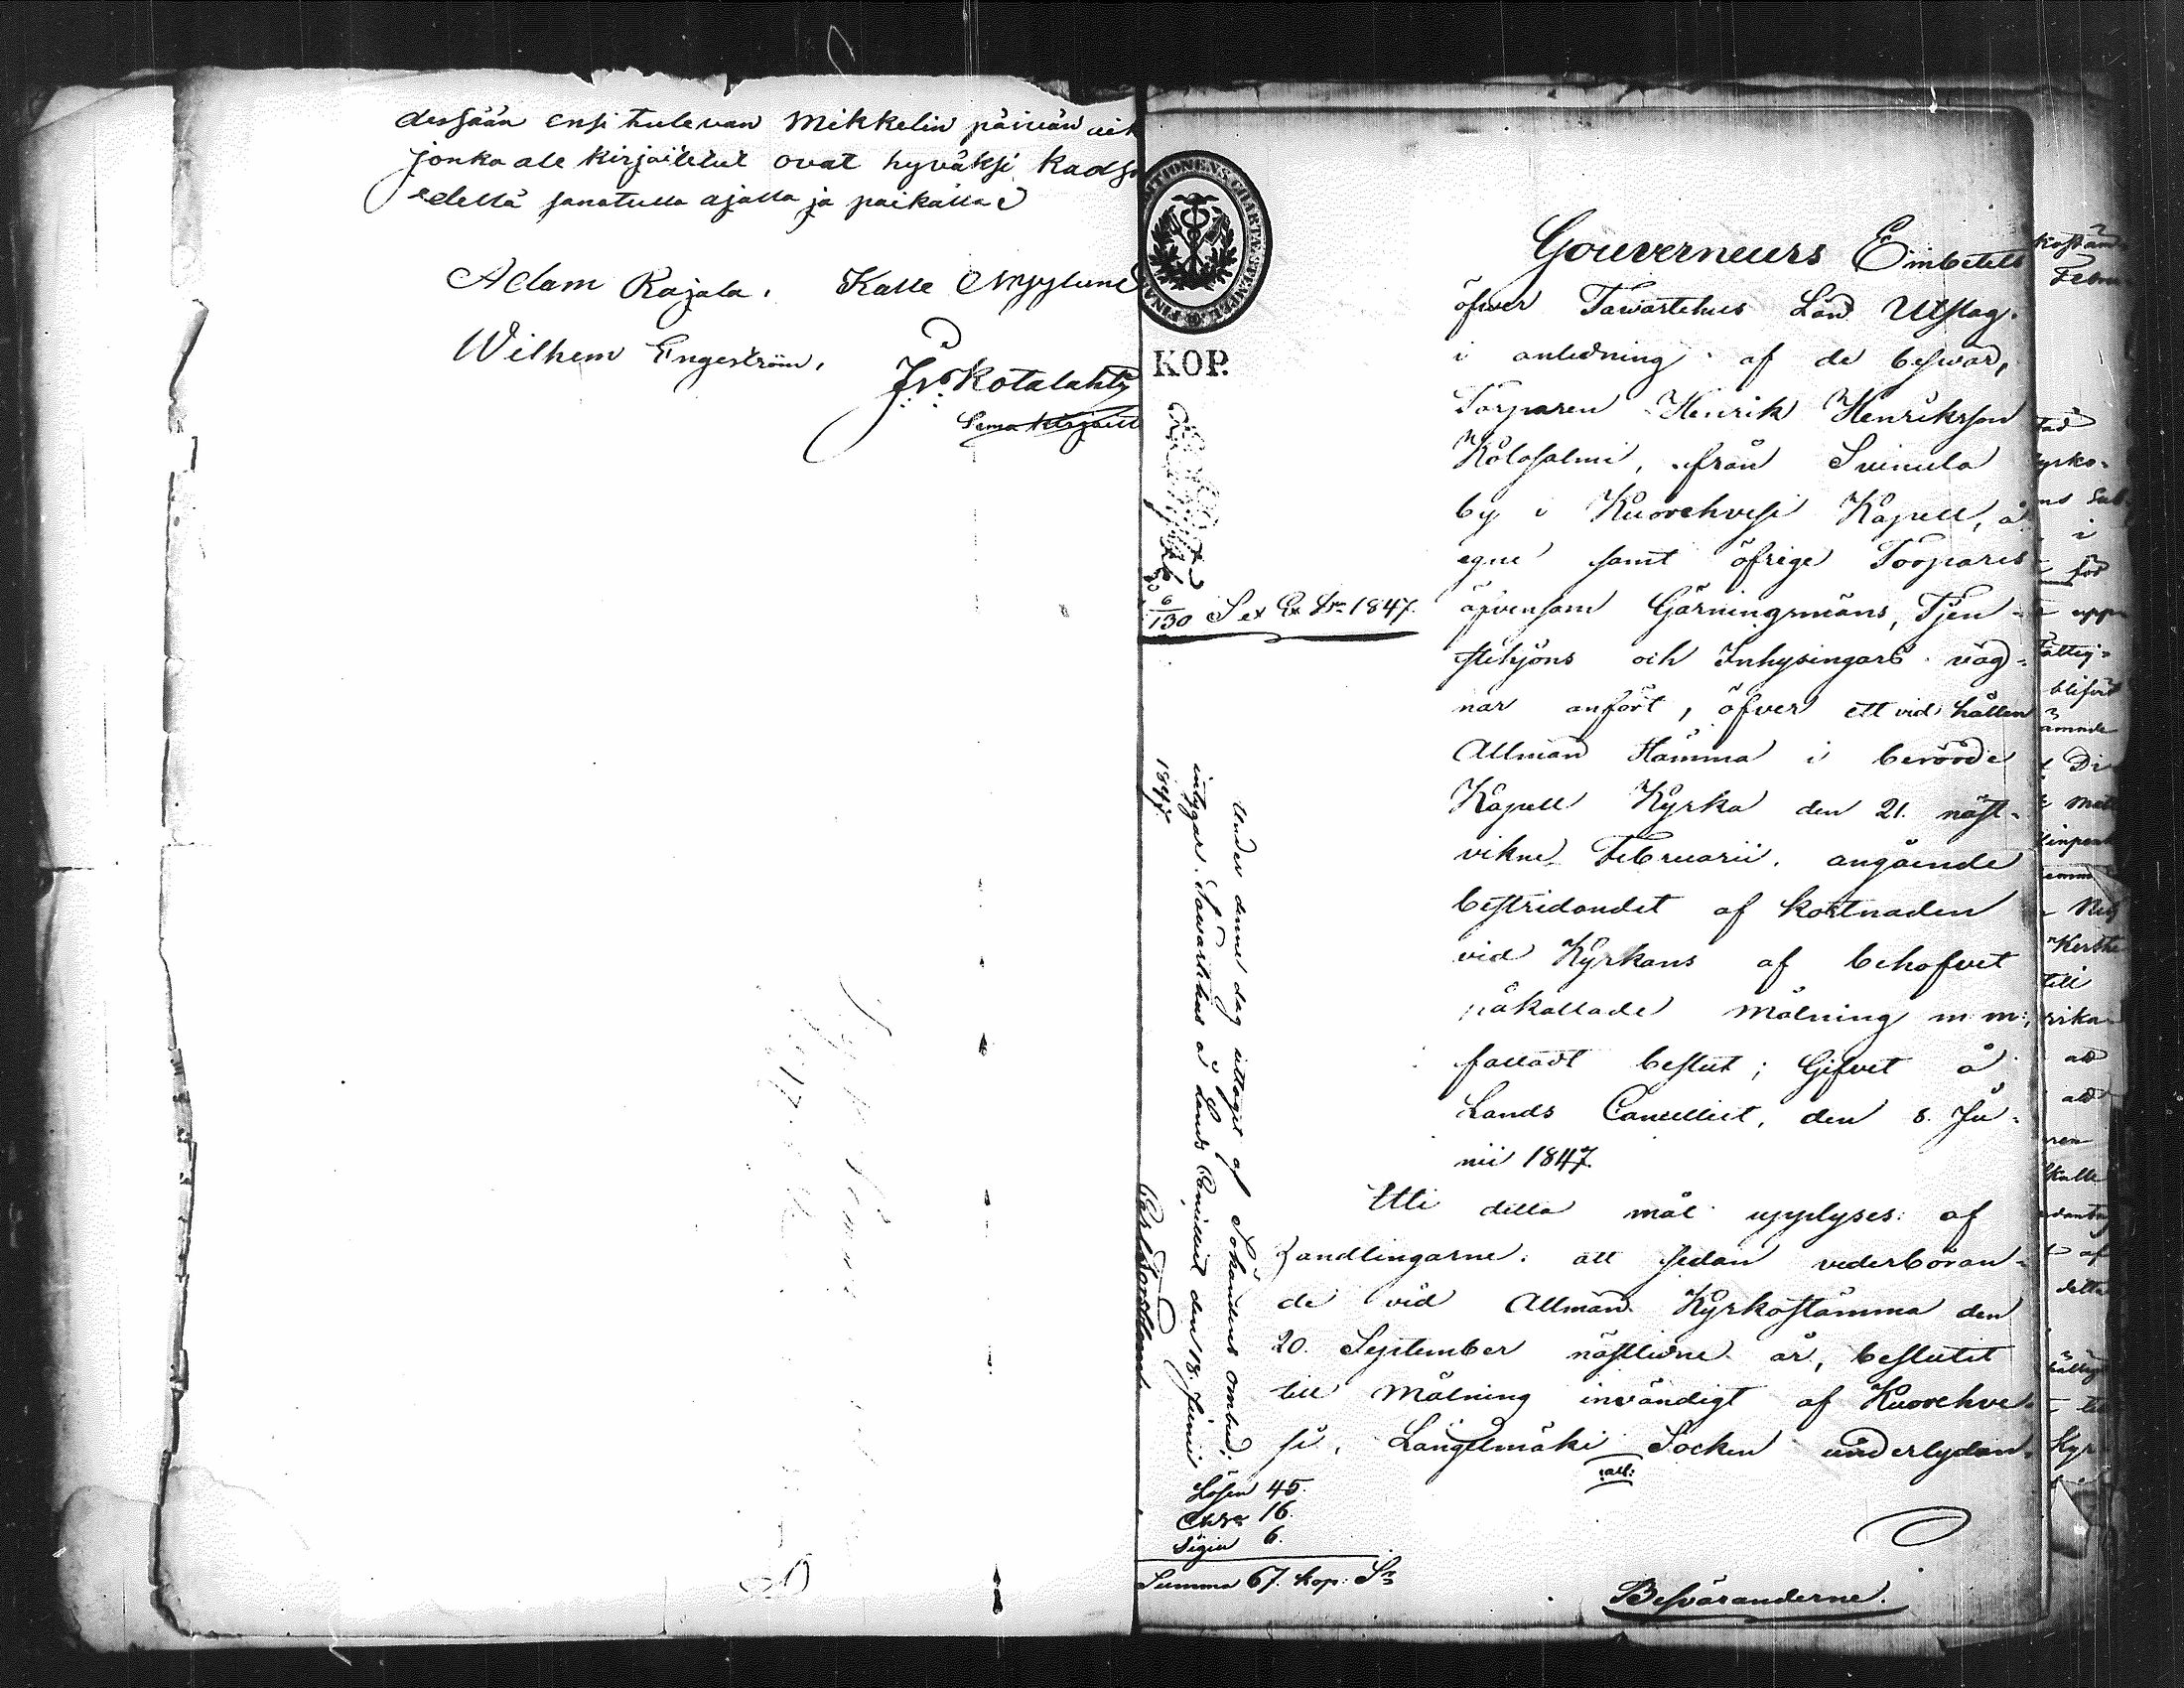 dessään ensi tulevan Mikkelin päivän
jonka ale kirjoitetut ovat hyväksi
edellä sanatulla ajalla ja paikalla
Adam Rajala. Kalle
Wilhem Engeström.
Kotalahti
KOP.
6
130 Sex 1847.
Under denne dag uttagit af Sökandens ombud;
intygar. Tawastehus å Lands Cancelliet den 18. Junii
1847.
Lösen 45.
16.
Sigill 6.
Summa 67. Kop: Sr
Gouverneurs Embetets
öfver Tawastehus Län Utslag
i anledning af de besvär,
Torparen Henrik Henriksson
Kolosalmi, från Suinula
by i Kuorehvesi Kapell, å
egne samt öfrige Torpares
äfvensom Gärningsmäns, Tjen-
stehjons och Inhysingars väg-
nar anfört, öfver ett vid hållen
Allmän Stämma i berörde
Kapell Kyrka den 21. näst-
vikne Februarii, angående
bestridandet af kostnaden
vid Kyrkans af behofvet
påkallade målning m. m.,
fattadt beslut; Gifvet å
Lands Cancelliet, den 8. Ju-
nii 1847.
Uti detta mål upplyses af
handlingarne: att sedan vederböran-
de vid Allmän Kyrkostämma den
20. September nästlidne år, beslutit
till målning invändigt af Kuorehve-
si, Längelmäki Socken underlydan-
Besväranderne.